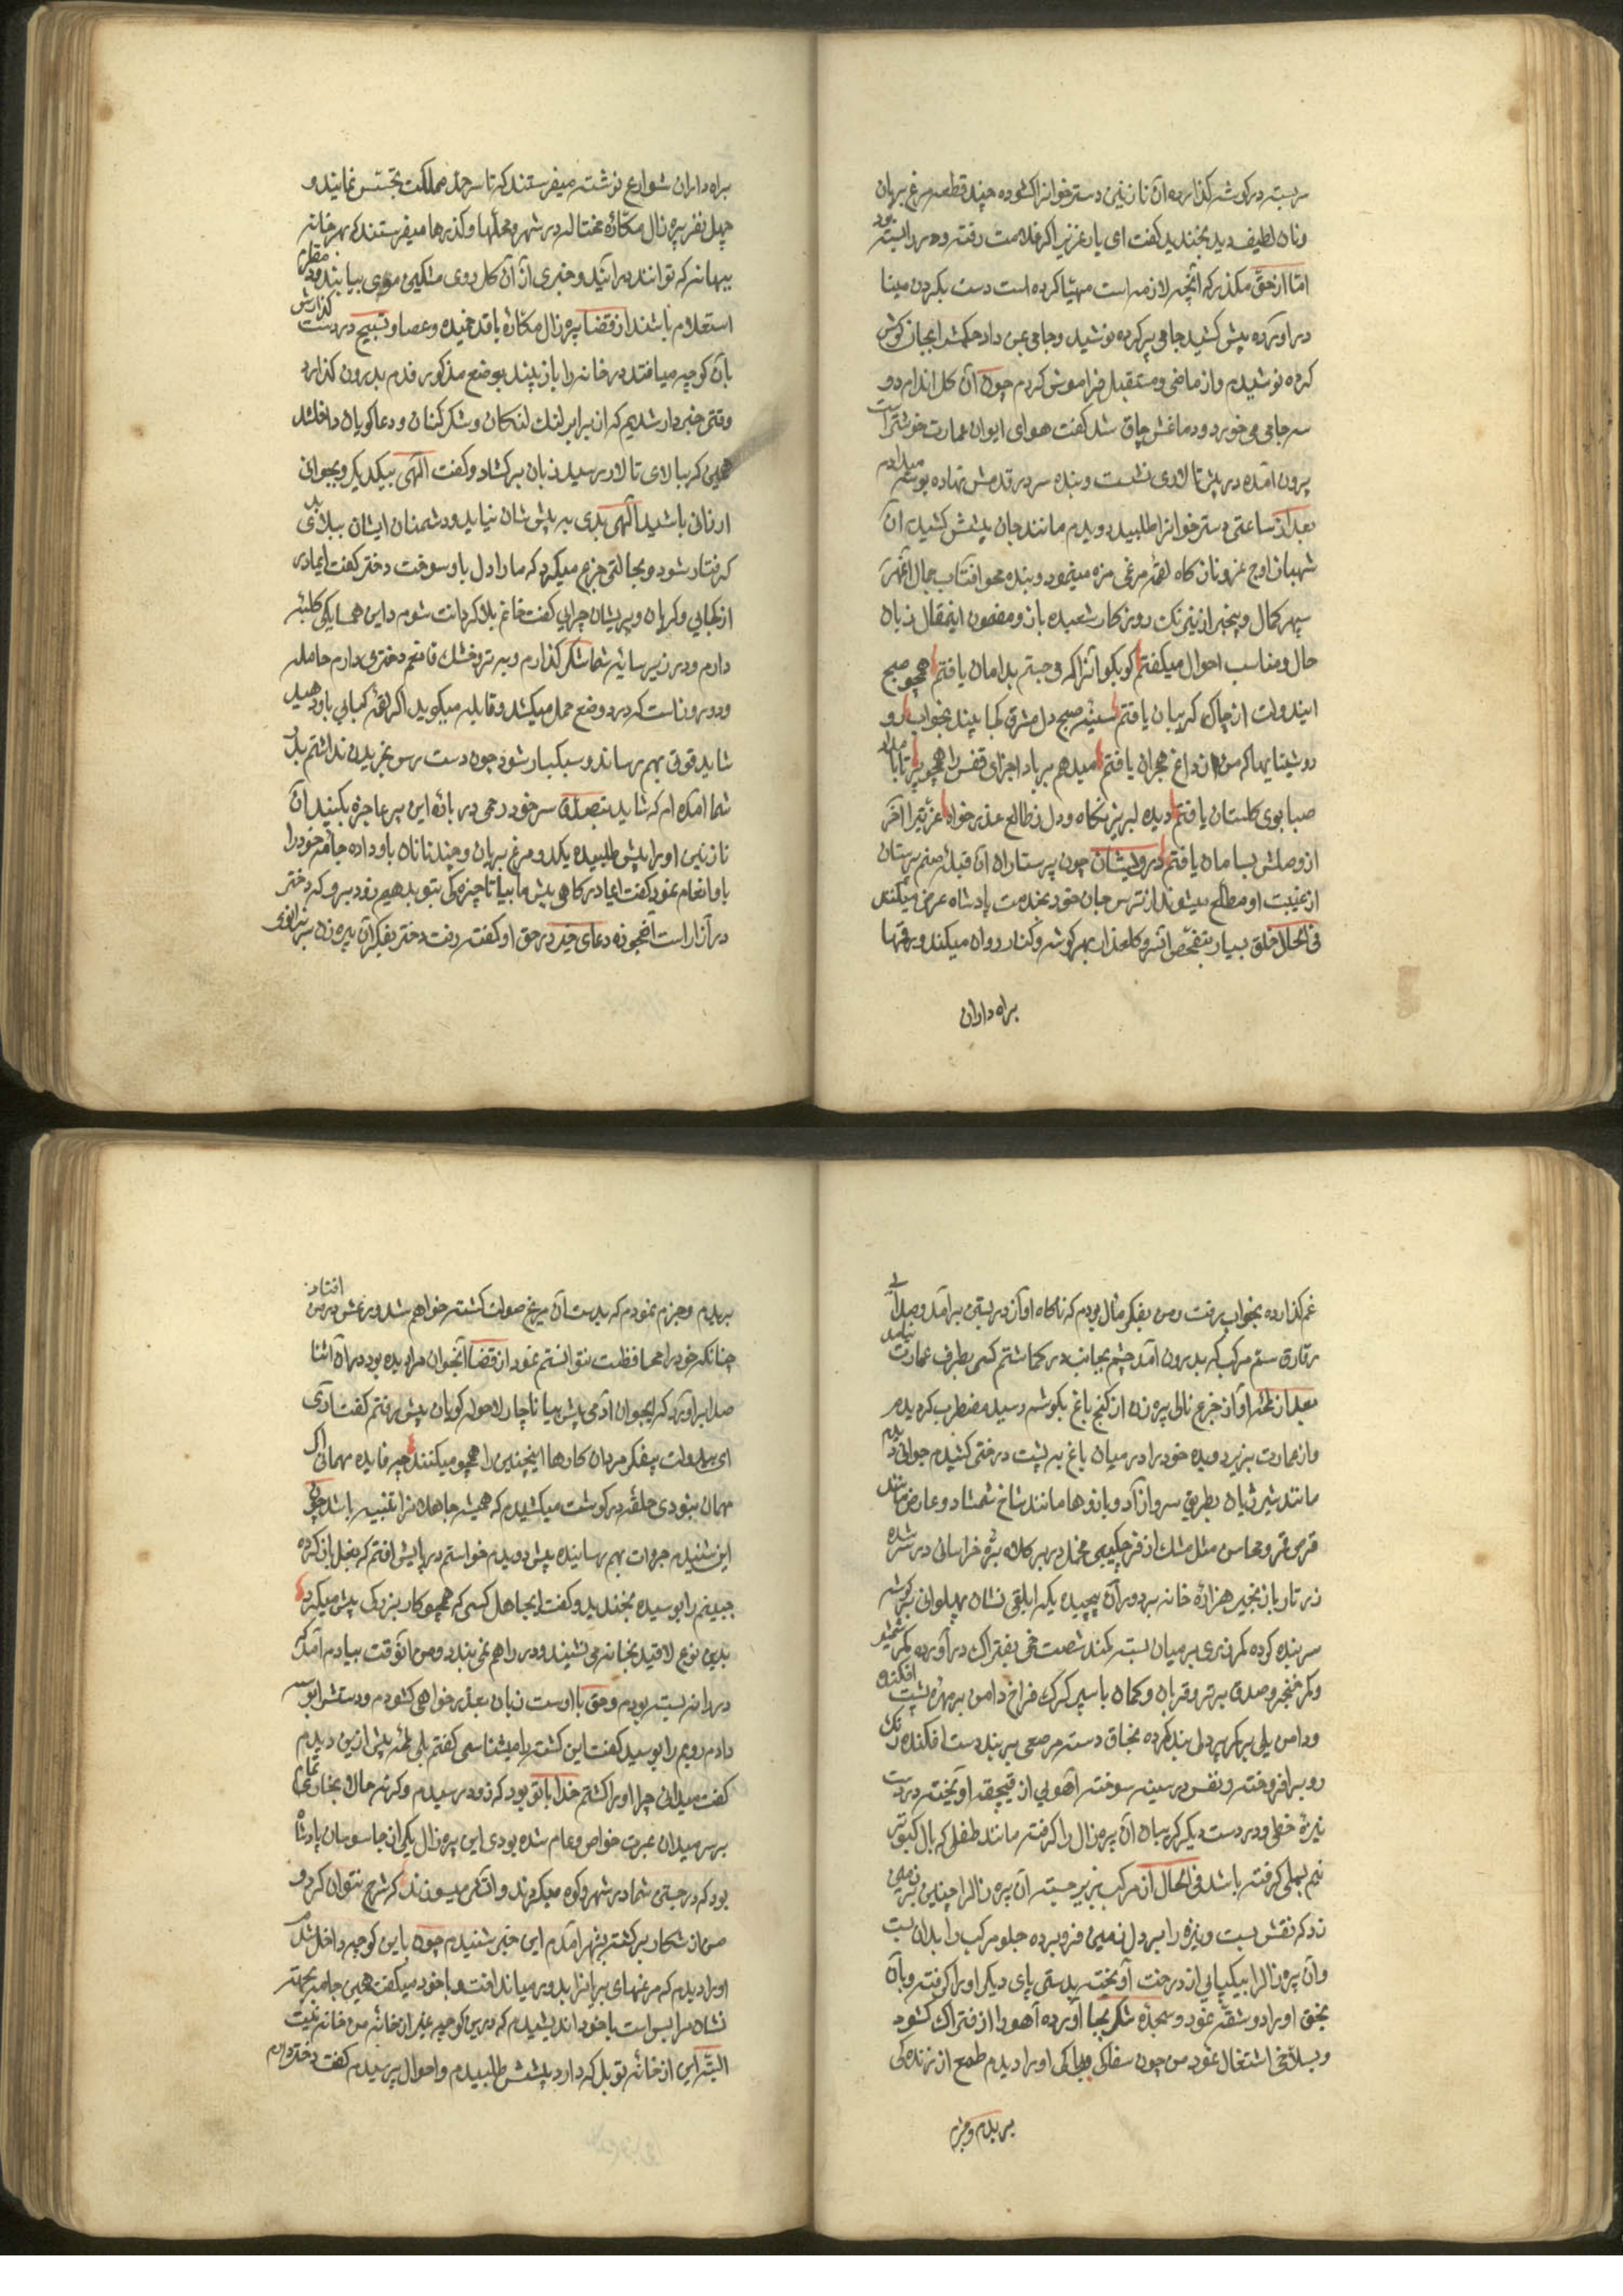 سربسته در گوشه گذارده آن نازنین دسترخوانرا کشوده چند قطعه مرغ بریان
ونان لطیف دید بخندید گفت ای یار عزیز اگر غلامت رفته ودر را بسته بود
امّا از حق مگذر که آنچه لازمه است مهیّا کرده است دست بگردن مینا
در آورده پیش کشید جامی پر کرده نوشید وجامی بمن داد
کرده نوشیدم واز ماضی ومستقبل فراموش کردم چون آن گل اندام دو
سه جامی می خورد ودماغش چاق شد گفت هوای ایوان عمارت خوشتر است
بیرون آمده در پیش تالاری نشست وبنده سر در قدمش نهاده بوسه میدادم
بعد از ساعتی دسترخوانرا طلبید دویدم مانند جان پیشش کشیدم آن
شهباز اوج عز وناز گاه لقمهٔ مرغی مزه مینمود وبنده محو آفتاب جمال آنمه
سپهر کمال وبیخبر از نیرنک روزکار شعبده باز ومضمون اینمقال زبان
حال ومناسب احوال میگفتم کو بکو آنرا که میجستم بدامان یافتم همچو صبح
ایندولت از چاک کریبان یافتم سینهٔ صبح دل مشرق کجا بیند بخواب
روشنیهایی که من از داغ هجران یافتم میدهم بر باد اجزای قفس را همچو پر تا با
صبا بوی گلستان یافتم دیده لبریز نگاه ودل ز طالع عذر خواه عزتیرا آخر
از وصلش بسامان یافتم درویشان چون پرستاران آن قبلهٔ صنم پرستان
از غیبت او مطلع میشوند از ترس جان خود بخدمت پادشاه عرض میکنند
فی الحال خلق بسیار بتفحص آنسرو گلعذار بهر گوشه وکنار روان میکند وبرقها
براه داران
براه داران شوارع نوشته میفرستند که تا سرحد مملکت تجسس نمایند و
چهل نفر پیره زال مکّارهٔ محتاله در شهر ومحلها وگذرها میفرستند که بهر خانه
ببهانه که توانند در آیند وخبری از آن گل روی مشکین موی بیابند ودر مقام
استعلام باشند از قضا پیره زال مکّاره با قد خمیده وعصا وتسبیح در دست گذارش
بآن کوچه میافتد در خانه را باز بیند بوضع مذکور قدم بدرون گذارد
وقتی خبردار شدیم که از برابر لنگ لنگان وشکر کنان ودعا گویان داخل شد
همین که ببالای تالار رسید زبان برکشاد وگفت الهی بیکدیگر وبجوانی
ارزانی باشید الهی بدی به پیش شان نیاید ودشمنان ایشان ببلای بد
گرفتار شود وبحالتی جزع میکرد که مارا دل باو سوخت دختر گفت ایمادر
از کجایی وگریان وپریشان چرایی گفت خانم بلا گردانت شوم در این همسایگی کلبهٔ
دارم ودر زیر سایهٔ شما شکر گذارم وبه تر وخشک قانعم دختری دارم حامله
ودو روز است که درد وضع حمل میکشد وقابله میگوید اگر لقمهٔ کبابی باو دهید
شاید قوتی بهم رساند وسبکبار شود چون دست رس بخریدن نداشتم بدر
شما آمده ام که شاید بتصدق سر خود رحمی در بارهٔ این پیر عاجزه بکنید آن
نازنین اورا پیش طلبیده یکدو مرغ بریان وچند تا نان باو داده جامهٔ خودرا
باو انعام نمود گفت ایمادر گاهی پیش ما بیا تا چیزکی بتو بدهیم زود برو که دختر
در آزار است آنعجوزه دعای چند در حق او گفته رفت دختر بفکر آن پیره زن سر بزانوی
غم گذارده بخواب رفت ومن بفکر مآل بودم که ناگاه آواز در بستن برآمد وصدای
تارق سم مرکب که بدرون آمد چشم بجانب در گماشتم کسی بطرف عمارت نیامد
بعد از لحظهٔ آواز جزع نالی پیره زن از کنج باغ بگوشم رسید مضطرب گردیدم
واز عمارت بزیر دویده خودرا در میان باغ به پشت درختی کشیدم جوانی دیدم
مانند شیر ژیان بطریق سرو آزاد وبازوها مانند شاخ شمشاد وعارض مانند
قرص قمر ومحاسن مثل مشک اذفر چکمی مخمل در بر کلاه برهٔ خراسانی در سر
زر تار باز نجیر هزار خانه بر دور آن پیچیده یکه ابلقی نشان پهلوانی بگوشه
سر بند کرده کمر زری بر میان بسته کمند شصت خم بفتراک در آورده کمر شمشیر
وکمر خنجر وصدق پر تیر وقربان وکمان با سپر گرگ فراخ دامن بر مهرهٔ پشت افکنده
ودامن یلی بر کمر پر دلی بند کرده مخناق دسته مرصعی بر بند دست افکنده رنگ
رو بر افروخته ونفس در سینه سوخته آهویی از قیچقه آویخته در دست
نیزهٔ خطی ودر دست دیگر گریبان آن پیره زال را گرفته مانند طفلی که بال کبوتر
نیم بسملی گرفته باشد فی الحال از مرکب بزیر جسته آن پیره زالرا چنان بر زمین
زد که نقش بست ونیزه را بر دل زمین فرو برده جلو مرکب را بدان بست
وآن پیره زالرا بیکپایی از درخت آویخته بدستی پای دیگر اورا گرفته وبآن
بخق اورا دو شقه نمود وسجدهٔ شکر بجا آورده آهو را از فتراک گشود
وبسلاخی اشتغال نمود من چون سفاکی وبیباکی اورا دیدم طمع از زندگی
بریدم وجزم
بریدم وجزم نمودم که بدست آن مریخ صولت کشته خواهم شد ورعشه در من افتاد
چنانکه خودرا محافظت نتوانستم نمود از قضا آنجوان مرا دیده بود در آن اثنا
صدا برآورد که ایجوان آدمی پیش بیا ناچار لاحول گویان پیش رفتم گفت آری
ای بیدولت بیفکر مردان کارها اینچنین را همچو میکنند چه فایده مهمانی اگر
مهمان نبودی حلقه در گوشت میکشیدم که همیشه جاهلانرا تنبیه باشد چون
این شنیدم جرات بهم رسانیده پیش دویدم خواستم در پایش افتم که بغل باز کرده
جبینم را بوسیده بخندید وگفت ایجاهل کسی که همچو کار بزرگ پیش میگیرد
بدین نوع لاقید بخانه می نشیند ودر را هم نمی بندد ومن آنوقت بیادم آمد که
در را نه بسته بودم وحق با اوست زبان بعذر خواهی گشودم ودستش را بوسه
دادم رویم را بوسید گفت این کشته را میشناسی گفتم بلی لحظهٔ پیش ازین دیدم
گفت میدانی چرا اورا کشتم خدا با تو بود که زود رسیدم وگرنه حالا بخاری تمام
بر سر میدان عبرت خواص وعام شده بودی این پیره زال یکی از جاسوسان پادشاه
بود که در جستن شما در شهر وکوه میگردند وآتشی میسوزند که شرح نتوان کرد و
من از شکار برگشته بشهر آمدم این خبر شنیدم چون باین کوچه داخل شدم
اورا دیدم که مرغهای بریانرا بدور میانداخت وبا خود میگفت همین جامه بجهت
نشان مرا بس است با خود اندیشیدم که درین کوچه غیر از خانهٔ من خانه نیست
البته این از خانهٔ تو بل که دارد پیشش طلبیدم واحوال پرسیدم گفت دختر دارم